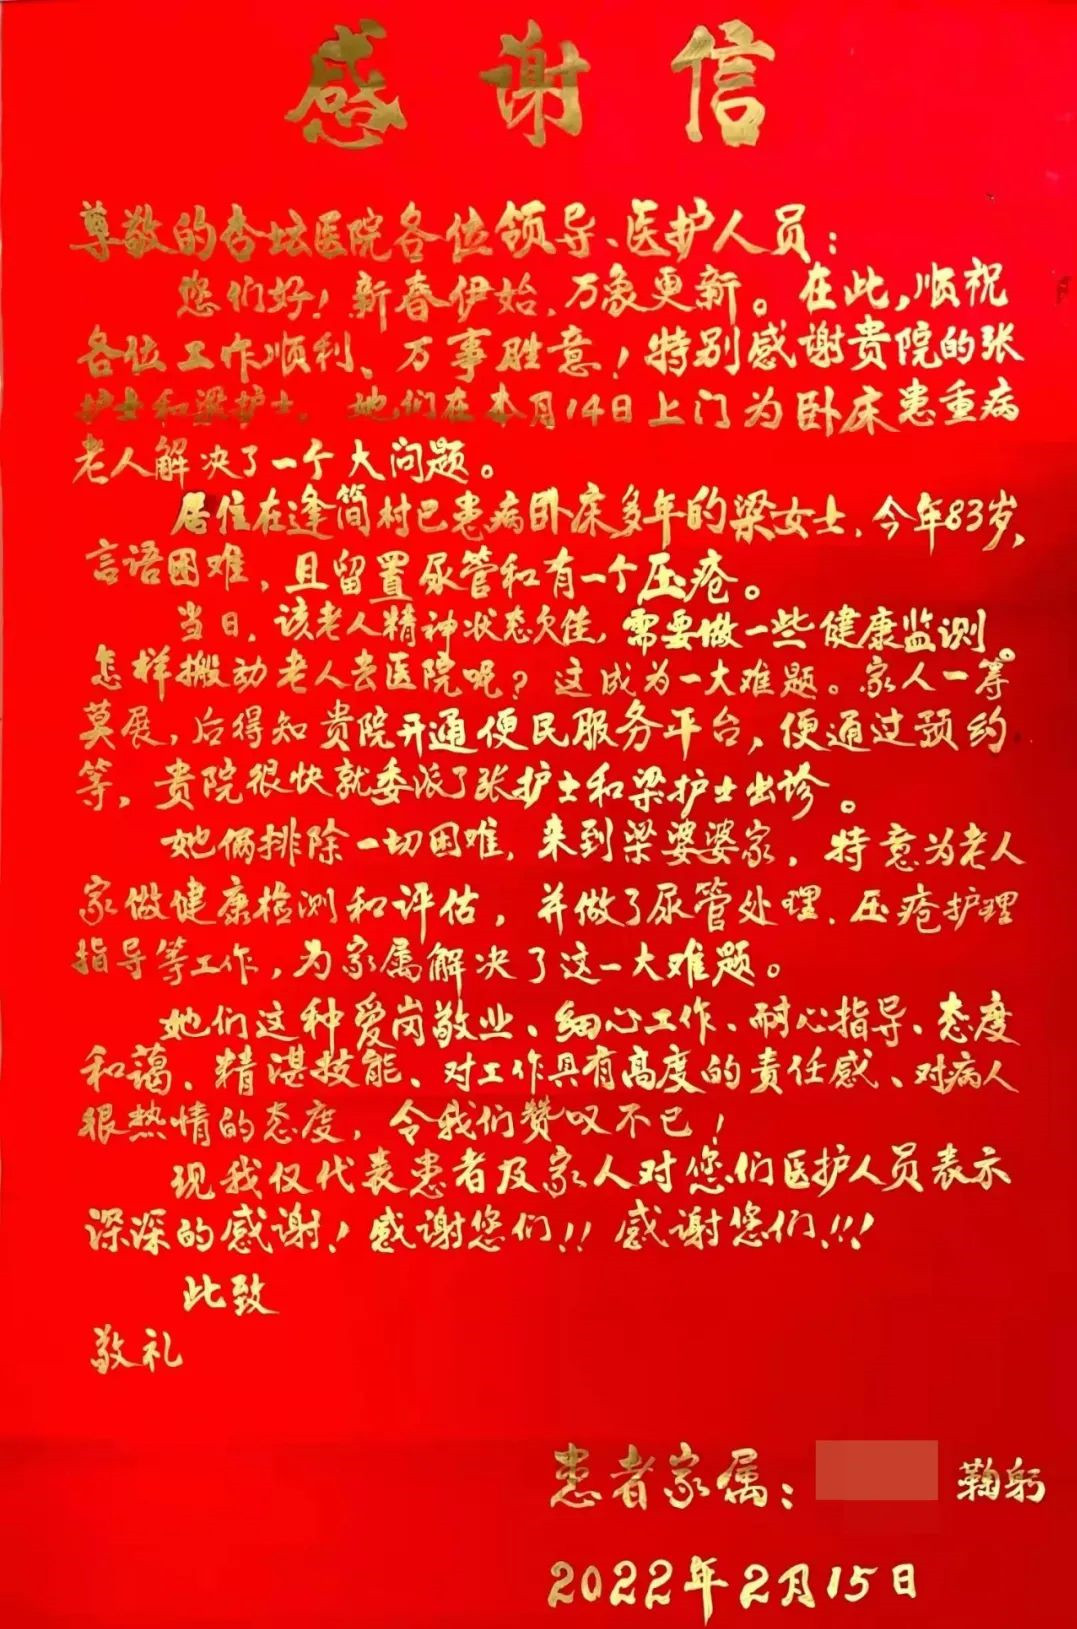 感谢信
尊敬的杏坛医院各位领导、医护人员：
您们好！新春伊始，万象更新。在此，顺祝
各位工作顺利、万事胜意！特别感谢贵院的张
护士和梁护士，她们在本月14日上门为卧床患重病
老人解决了一个大问题。
居住在逢简村已患病卧床多年的梁女士，今年83岁，
言语困难，且留置尿管和有一个压疮。
当日，该老人精神状态欠佳，需要做一些健康监测。
怎样搬动老人去医院呢？这成为一大难题。家人一筹
莫展，后得知贵院开通便民服务平台，便通过预约
等，贵院很快就委派了张护士和梁护士出诊。
她俩排除一切困难，来到梁婆婆家，特意为老人
家做健康检测和评估，并做了尿管处理、压疮护理
指导等工作，为家属解决了这一大难题。
她们这种爱岗敬业、细心工作、耐心指导、态度
和蔼、精湛技能、对工作具有高度的责任感、对病人
很热情的态度，令我们赞叹不已！
现我仅代表患者及家人对您们医护人员表示
深深的感谢！感谢您们！！感谢您们！！！
此致
敬礼
患者家属：鞠躬
2022年2月15日